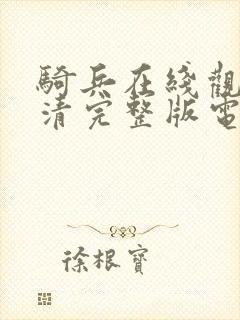 騎兵在綫觀
清完整版電
徐根寶